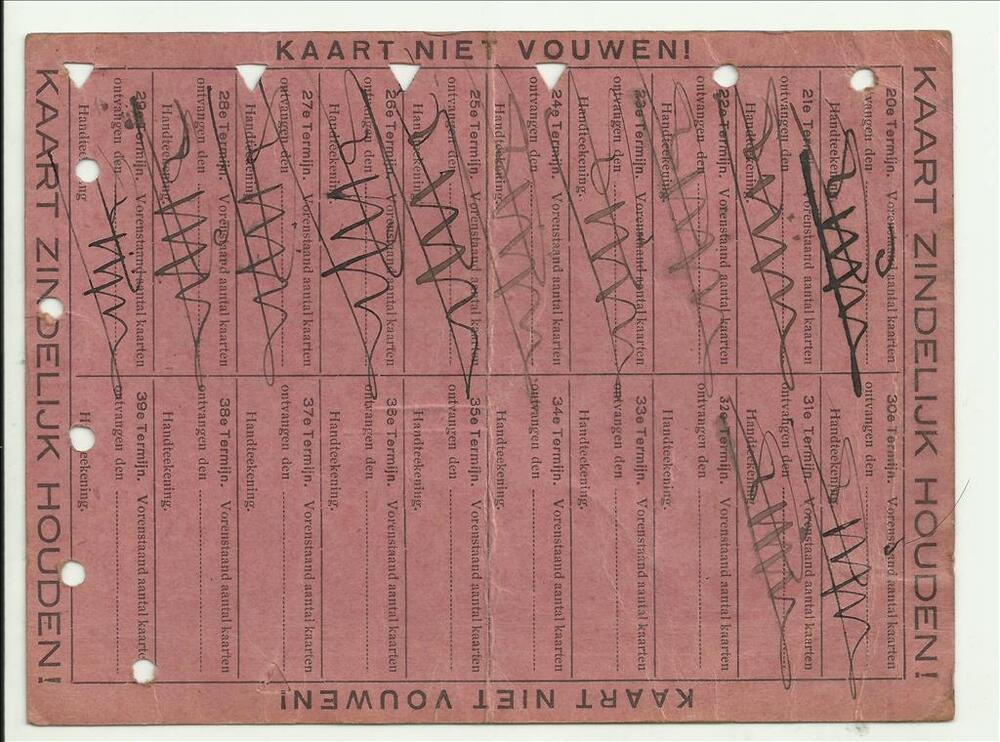 KAART NIET VOUWEN!
KAART ZINDELIJK HOUDEN!
20e Termijn. Vorenstaand aantal kaarten
ontvangen den
Handteekening.
21e Termijn. Vorenstaand aantal kaarten
ontvangen den
Handteekening.
22e Termijn. Vorenstaand aantal kaarten
ontvangen den
Handteekening.
23e Termijn. Vorenstaand aantal kaarten
ontvangen den
Handteekening.
24e Termijn. Vorenstaand aantal kaarten
ontvangen den
Handteekening.
25e Termijn. Vorenstaand aantal kaarten
ontvangen den
Handteekening.
26e Termijn. Vorenstaand aantal kaarten
ontvangen den
Handteekening.
27e Termijn. Vorenstaand aantal kaarten
ontvangen den
Handteekening.
28e Termijn. Vorenstaand aantal kaarten
ontvangen den
Handteekening.
29e Termijn. Vorenstaand aantal kaarten
ontvangen den
Handteekening
30e Termijn. Vorenstaand aantal kaarten
ontvangen den
Handteekening.
31e Termijn. Vorenstaand aantal kaarten
ontvangen den
Handteekening.
32e Termijn. Vorenstaand aantal kaarten
ontvangen den
Handteekening.
33e Termijn. Vorenstaand aantal kaarten
ontvangen den
Handteekening.
34e Termijn. Vorenstaand aantal kaarten
ontvangen den
Handteekening.
35e Termijn. Vorenstaand aantal kaarten
ontvangen den
Handteekening.
36e Termijn. Vorenstaand aantal kaarten
ontvangen den
Handteekening.
37e Termijn. Vorenstaand aantal kaarten
ontvangen den
Handteekening.
38e Termijn. Vorenstaand aantal kaarten
ontvangen den
Handteekening.
39e Termijn. Vorenstaand aantal kaarten
ontvangen den
Handteekening.
KAART ZINDELIJK HOUDEN!
KAART NIET VOUWEN!